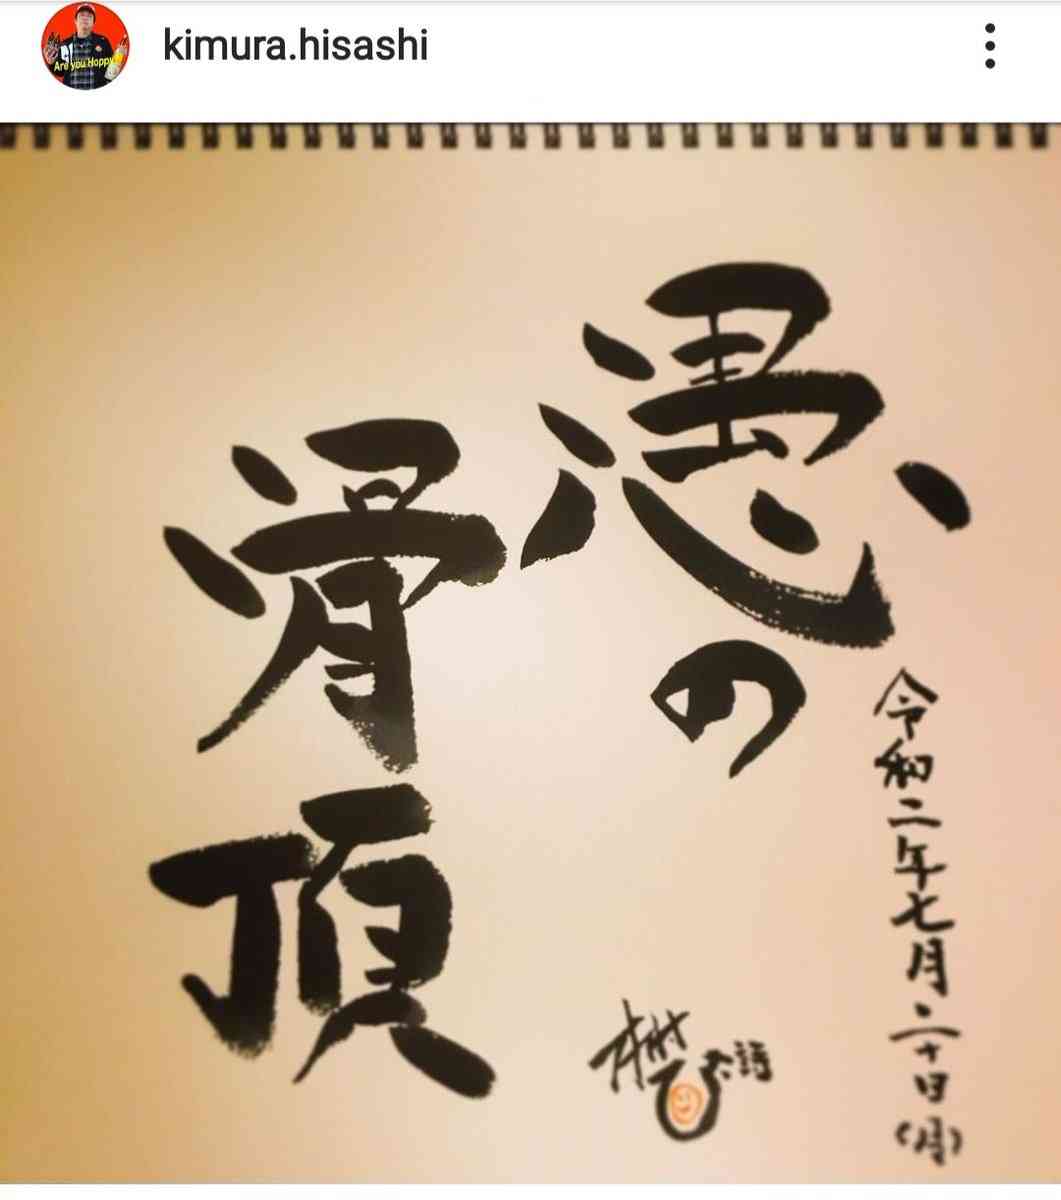 kimura.hisashi
Are you Hoppy
愚の
骨頂
令和二年七月二十日(月)